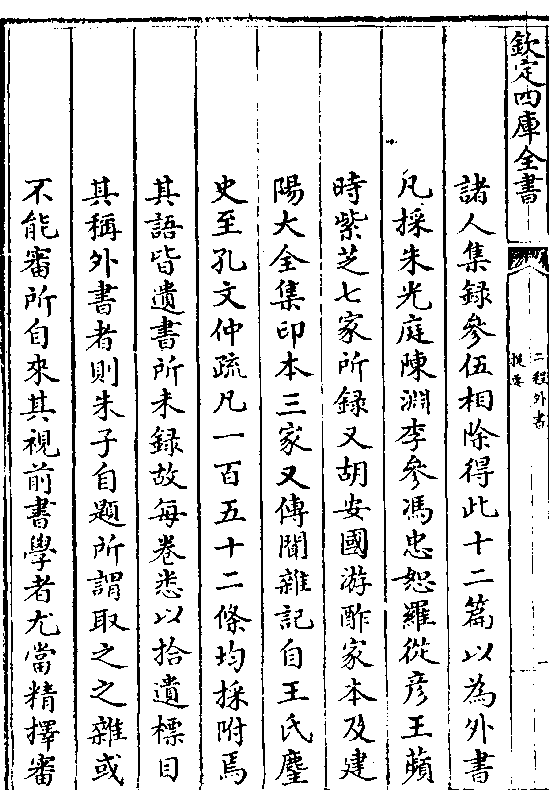 欽定四庫全書
二程外書
提要
諸人集録參伍相除得此十二篇以為外書
凡採朱光庭陳淵李參馮忠恕羅從彦王蘋
時紫芝七家所録又胡安國游酢家本及建
陽大全集印本三家又傳聞雜記自王氏麈
史至孔文仲疏凡一百五十二條均採附焉
其語皆遺書所未録故每卷悉以拾遺標目
其稱外書者則朱子自題所謂取之之雜或
不能審所自來其視前書學者尤當精擇審